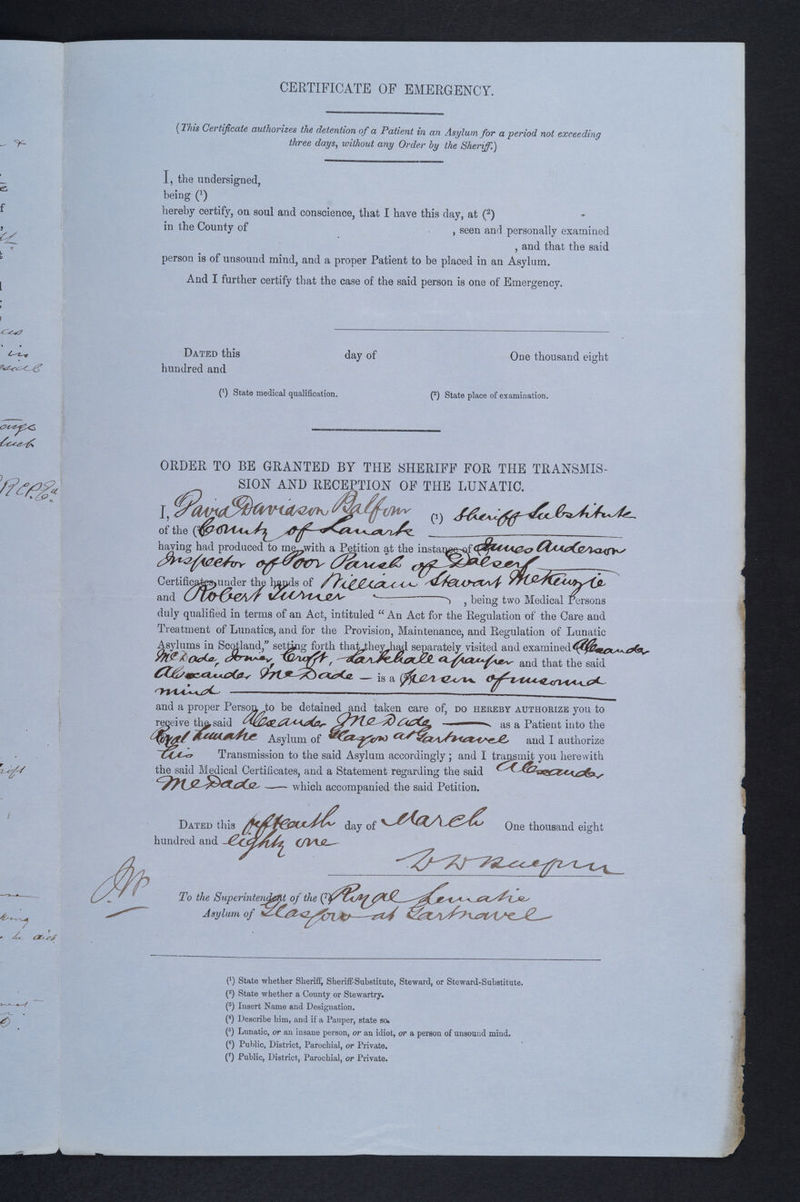 CERTIFICATE OF EMERGENCY.
(This Certificate authorizes the detention of a Patient in an Asylum for a period not exceeding
three days, without any Order by the Sheriff.)
I, the undersigned,
being (¹)
hereby certify, on soul and conscience, that I have this day, at (²)
in the County of , seen and personally examined
, and that the said
person is of unsound mind, and a proper Patient to be placed in an Asylum.
And I further certify that the case of the said person is one of Emergency.
DATED this day of One thousand eight
hundred and
(¹) State medical qualification. (²) State place of examination.
ORDER TO BE GRANTED BY THE SHERIFF FOR THE TRANSMIS-
SION AND RECEPTION OF THE LUNATIC.
I, David Davidson Balfour (¹) Sheriff Substitute
of the County of Lanark
having had produced to me, with a Petition at the instance of James Anderson
Inspector of Poor Parish of Dalserf
Certificates under the hands of William Stewart McKenzie
and Robert Turner , being two Medical Persons
duly qualified in terms of an Act, intituled “An Act for the Regulation of the Care and
Treatment of Lunatics, and for the Provision, Maintenance, and Regulation of Lunatic
Asylums in Scotland,” setting forth that they had separately visited and examined Alexander
McDade, Croft, Larkhall a pauper and that the said
Alexander McDade — is a person of unsound
mind
and a proper Person to be detained and taken care of, DO HEREBY AUTHORIZE you to
receive the said Alexander McDade as a Patient into the
Royal Lunatic Asylum of Glasgow at Gartnavel and I authorize
his Transmission to the said Asylum accordingly; and I transmit you herewith
the said Medical Certificates, and a Statement regarding the said Alexander
McDade — which accompanied the said Petition.
DATED this fifteenth day of March One thousand eight
hundred and eighty one
To the Superintendent of the Royal Lunatic
Asylum of Glasgow at Gartnavel
(¹) State whether Sheriff, Sheriff-Substitute, Steward, or Steward-Substitute.
(²) State whether a County or Stewartry.
(³) Insert Name and Designation.
(⁴) Describe him, and if a Pauper, state so.
(⁵) Lunatic, or an insane person, or an idiot, or a person of unsound mind.
(⁶) Public, District, Parochial, or Private.
(⁷) Public, District, Parochial, or Private.